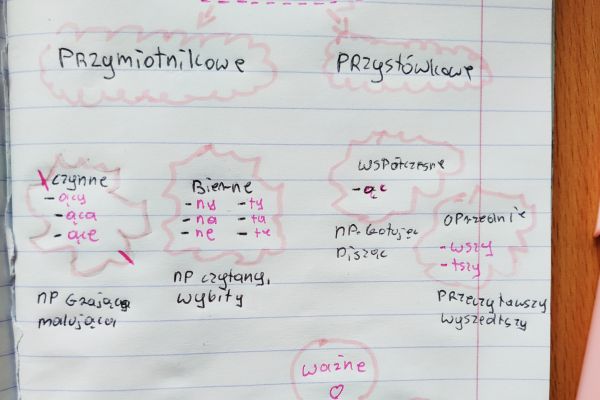 Przymiotnikowe
Przysłówkowe
czynne
- ący
- ąca
- ące
Bierne
- ny - ty
- na - ta
- ne - te
współczesne
- ąc
uprzednie
- wszy
- łszy
np grająca
malująca
np czytany,
wybity
np. Gotując
pisząc
przeczytawszy
wyszedłszy
ważne